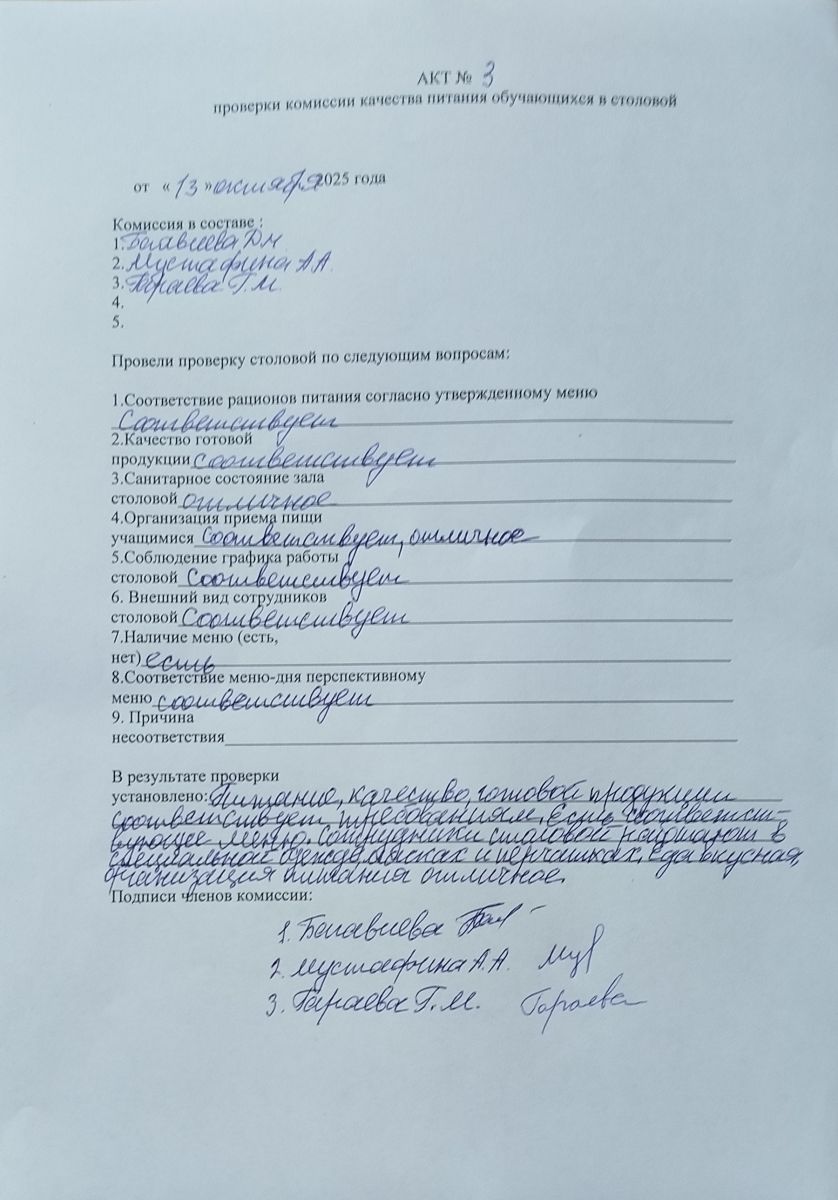 АКТ № 3
проверки комиссии качества питания обучающихся в столовой
от « 13 » октября 2025 года
Комиссия в составе :
1. Д.М
2. Мустафина А.А.
3. Гараева Г.М.
4.
5.
Провели проверку столовой по следующим вопросам:
1.Соответствие рационов питания согласно утвержденному меню
Соответствует
2.Качество готовой
продукции соответствует
3.Санитарное состояние зала
столовой отличное
4.Организация приема пищи
учащимися соответствует, отличное
5.Соблюдение графика работы
столовой Соответствует
6. Внешний вид сотрудников
столовой Соответствует
7.Наличие меню (есть,
нет) есть
8.Соответствие меню-дня перспективному
меню соответствует
9. Причина
несоответствия
В результате проверки
установлено: Питание, качество, готовой продукции
соответствует требованиям, есть соответст-
вующее меню. Сотрудники столовой работают в
специальной одежде, масках и перчатках. Еда вкусная,
организация питания отличное.
Подписи членов комиссии:
1.
2. Мустафина А.А. Муф
3. Гараева Г.М. Гараева